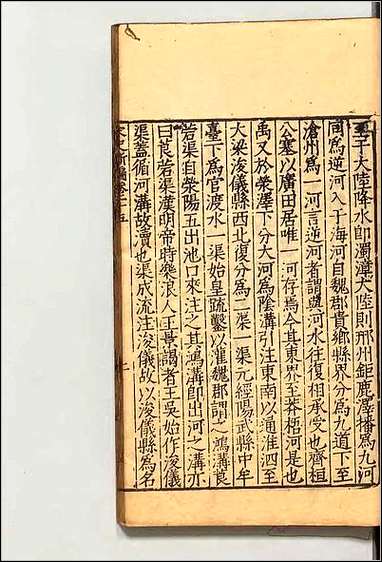 至于大陸降水即濁漳大陸則邢州鉅鹿澤播為九河
同為逆河入于海河自魏郡貴鄉縣界分為九道下至
滄州為一河言逆河者謂與河水往復相承受也齊桓
公塞以廣田居唯一河存焉今其東界至莽梧河是也
禹又於滎澤下分大河為陰溝引注東南以通淮泗至
大梁浚儀縣西北復分為二渠一渠元經陽武縣中牟
臺下為官渡水一渠始皇疏鑿以灌魏郡謂之鴻溝莨
若渠自滎陽五出池口來注之其鴻溝即出河之溝亦
曰莨若渠漢明帝時樂浪人王景謁者王吳始作浚儀
渠蓋循河溝故瀆也渠成流注浚儀故以浚儀縣為名
宋史新編卷二十五